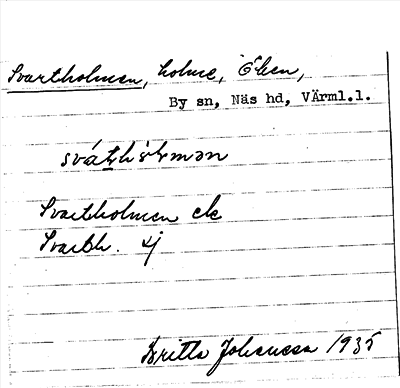 Svartholmen, holme, Ölsen,
By sn, Näs hd, Värml.l.
Svartholmen ek
Svarth. ej
Britta Johansson 1935